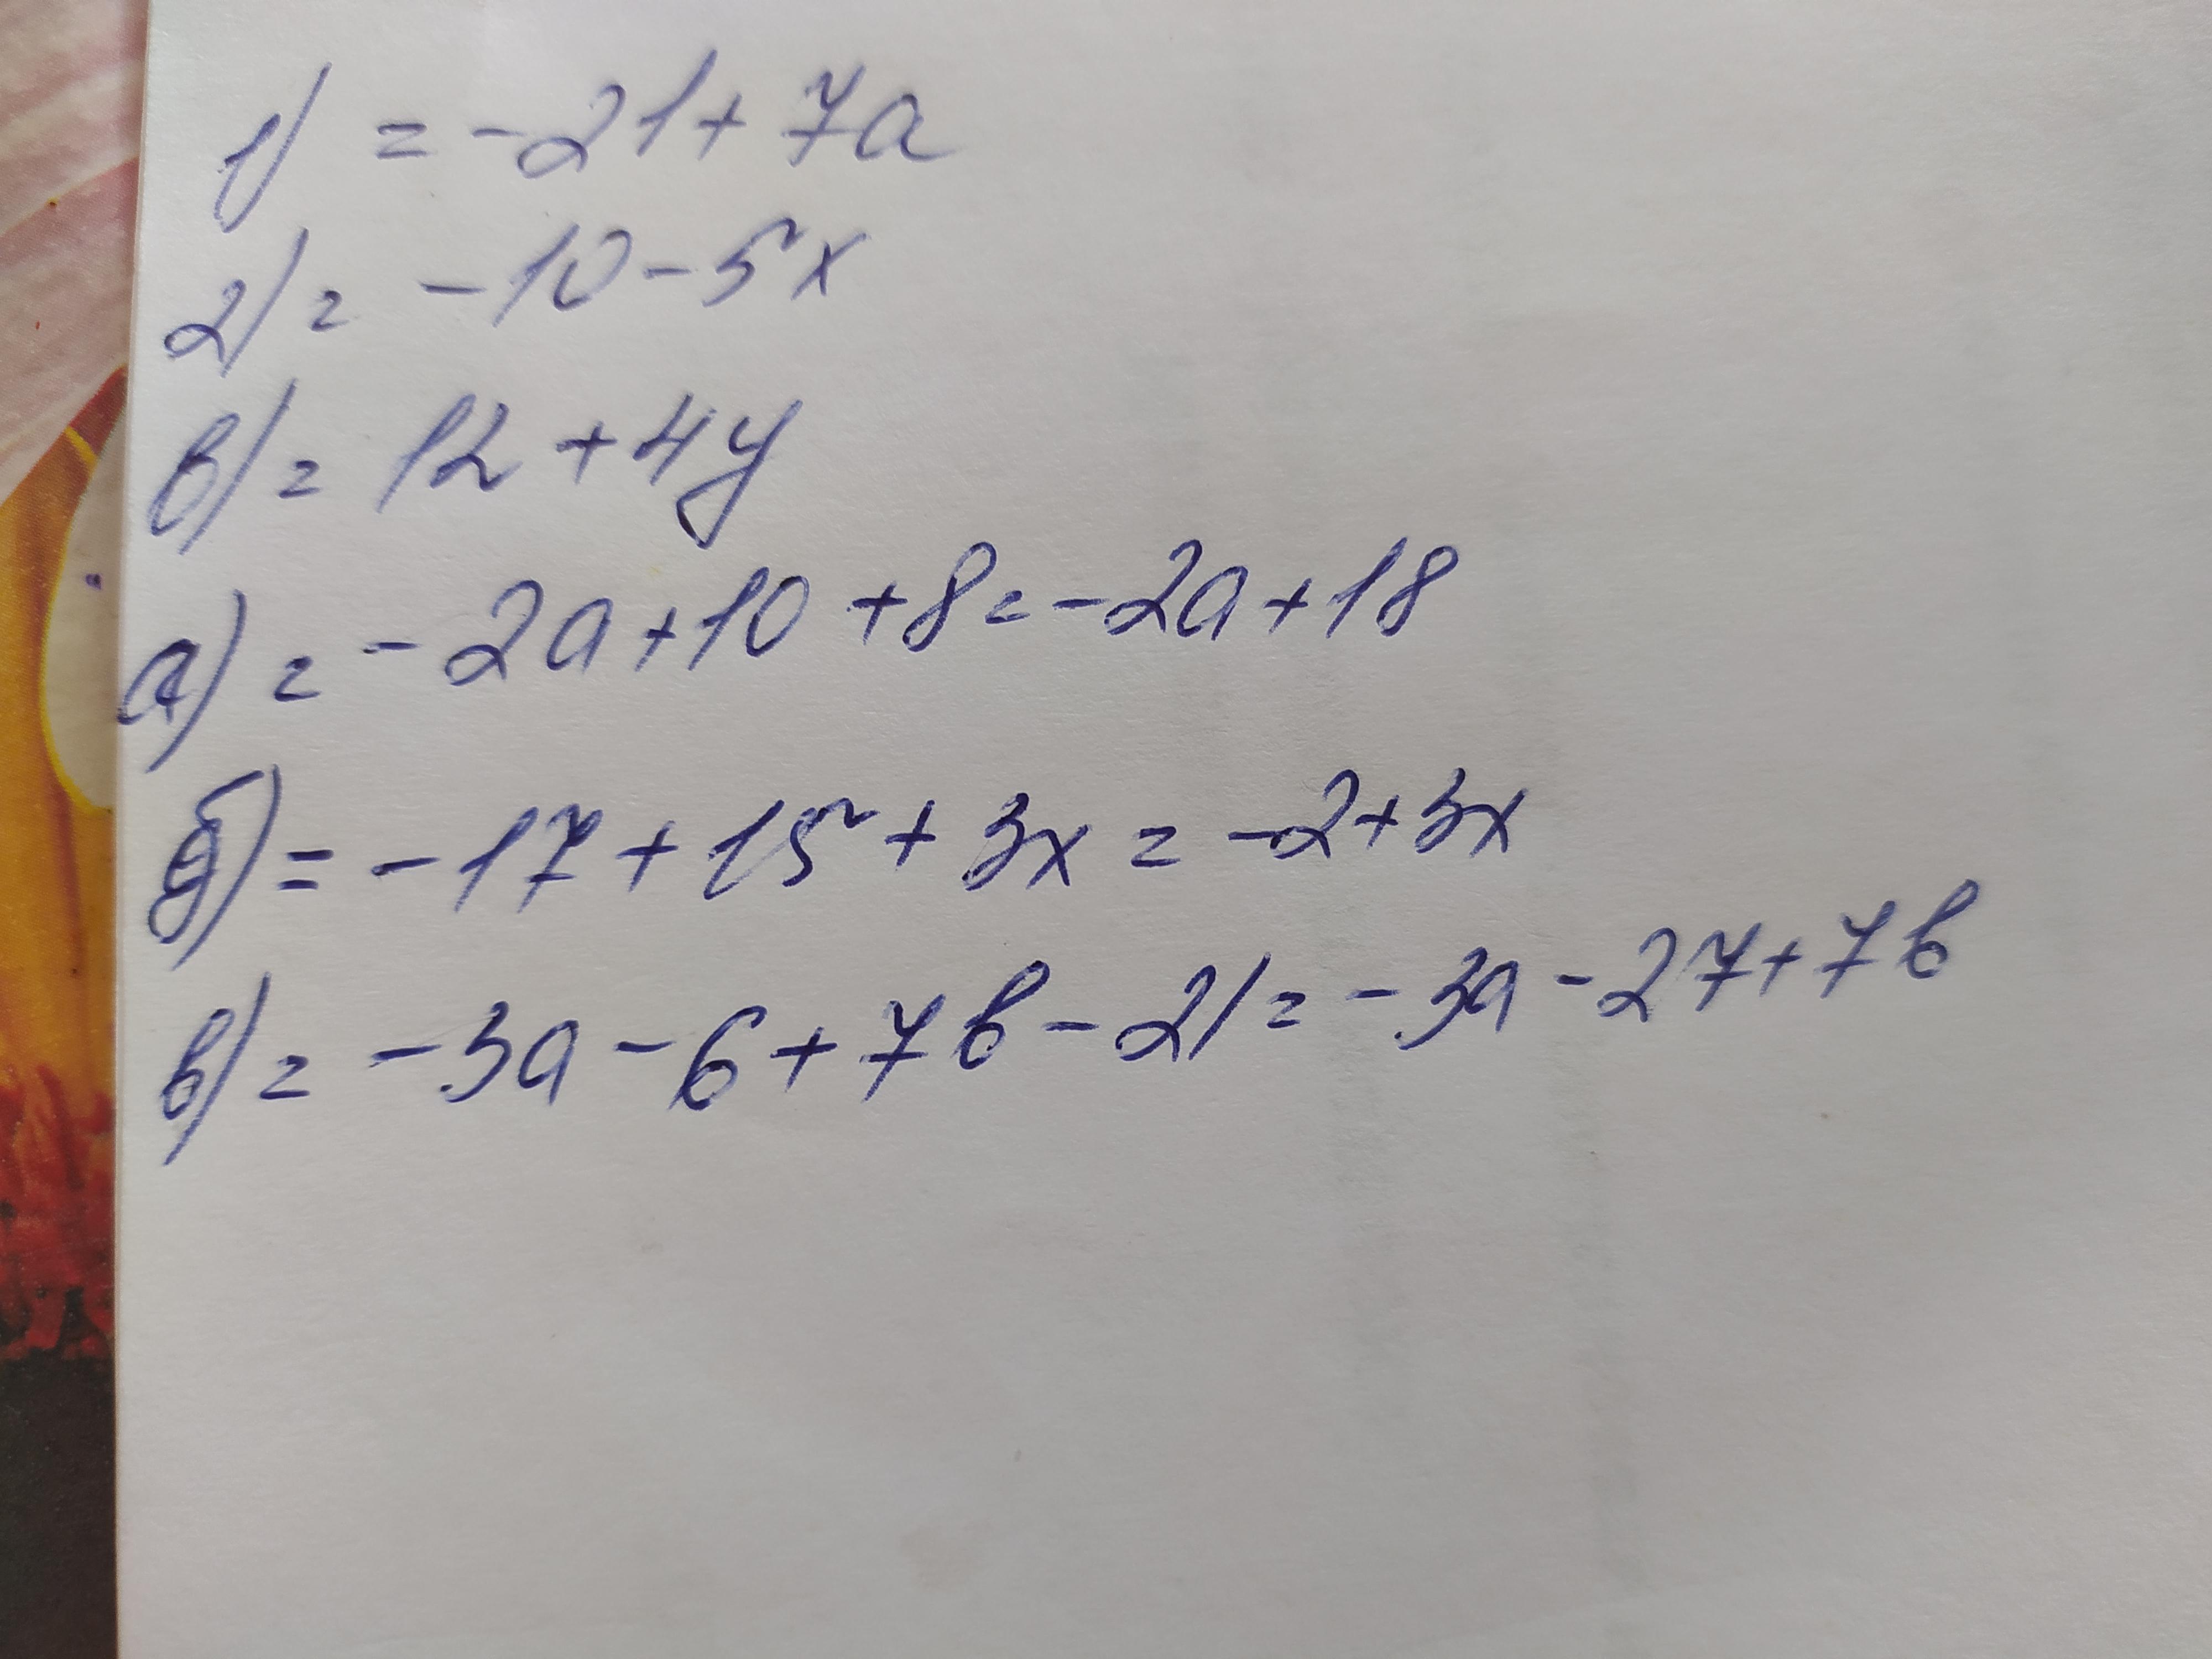 1) = -21+7a
2) = -10-5x
в) = 12+4y
а) = -2a+10+8=-2a+18
б) = -17+15+3x=-2+3x
в) = -3a-6+7b-21=-3a-27+7b